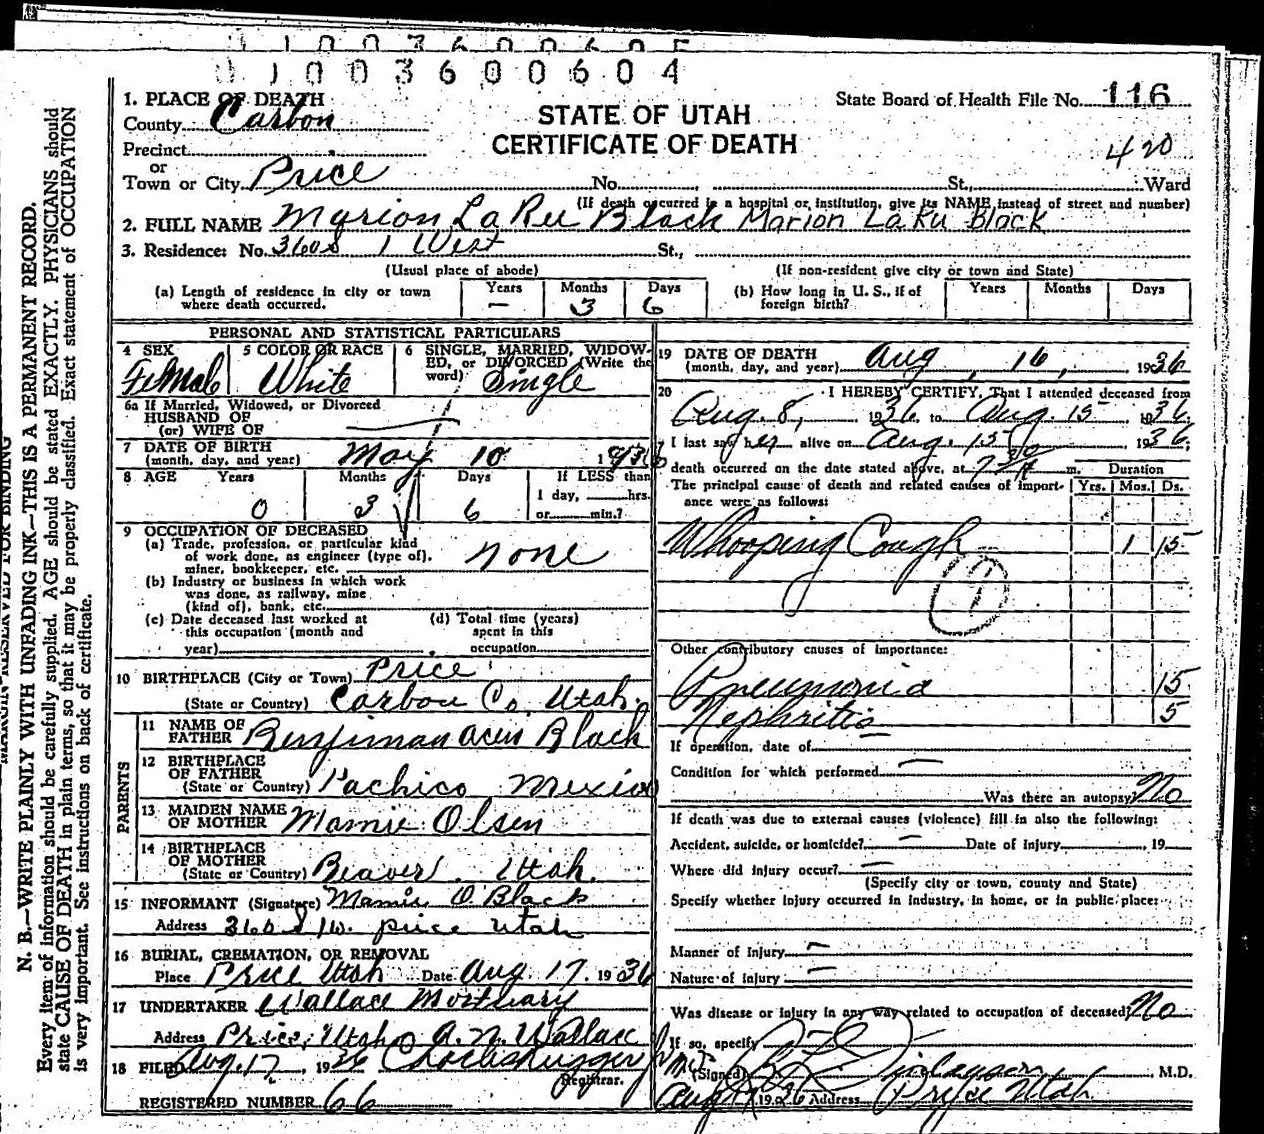 0 1 0 0 3 6 0 0 6 0 4
1. PLACE OF DEATH
County Carbon
STATE OF UTAH
CERTIFICATE OF DEATH
State Board of Health File No. 116
420
Precinct
or
Town or City Price No. St., Ward
(If death occurred in a hospital or institution, give its NAME instead of street and number)
2. FULL NAME Myrion LaRu Black Marion LaRu Black
3. Residence: No. 360 S 1 West St.,
(Usual place of abode) (If non-resident give city or town and State)
(a) Length of residence in city or town where death occurred. Years — Months 3 Days 6
(b) How long in U. S., if of foreign birth? Years Months Days
PERSONAL AND STATISTICAL PARTICULARS
4 SEX Female
5 COLOR OR RACE White
6 SINGLE, MARRIED, WIDOWED, or DIVORCED (Write the word) Single
6a If Married, Widowed, or Divorced
HUSBAND OF
(or) WIFE OF —
7 DATE OF BIRTH
(month, day, and year) May 10 1936
8 AGE Years 0 Months 3 Days 6
If LESS than
1 day, hrs.
or min.?
9 OCCUPATION OF DECEASED
(a) Trade, profession, or particular kind
of work done, as engineer (type of),
miner, bookkeeper, etc. none
(b) Industry or business in which work
was done, as railway, mine
(kind of), bank, etc.
(c) Date deceased last worked at
this occupation (month and
year)
(d) Total time (years)
spent in this
occupation
10 BIRTHPLACE (City or Town) Price
(State or Country) Carbon Co, Utah.
PARENTS
11 NAME OF
FATHER Benjiman Black
12 BIRTHPLACE
OF FATHER
(State or Country) Pachico Mexico
13 MAIDEN NAME
OF MOTHER Mamie Olsen
14 BIRTHPLACE
OF MOTHER
(State or Country) Beaver. Utah.
15 INFORMANT (Signature) Mamie O. Black
Address 360 S 1w. price Utah
16 BURIAL, CREMATION, OR REMOVAL
Place Price Utah Date Aug 17 1936
17 UNDERTAKER Wallace Mortuary
Address Price, Utah A. N. Wallace
18 FILED Aug. 17, 1936
Registrar.
REGISTERED NUMBER 66
19 DATE OF DEATH
(month, day, and year) Aug, 16, 1936
20 I HEREBY CERTIFY, That I attended deceased from
Aug. 8, 1936 to Aug. 15 1936.
I last saw her alive on Aug. 15 1936;
death occurred on the date stated above, at 7 30 A m. Duration
The principal cause of death and related causes of importance were as follows: Yrs. Mos. Ds.
Whooping Cough 1 15
1
Other contributory causes of importance:
Pneumonia 15
Nephritis 5
If operation, date of —
Condition for which performed —
Was there an autopsy? No
If death was due to external causes (violence) fill in also the following:
Accident, suicide, or homicide? — Date of Injury , 19
Where did injury occur? —
(Specify city or town, county and State)
Specify whether injury occurred in industry, in home, or in public place:
Manner of Injury —
Nature of Injury —
Was disease or injury in any way related to occupation of deceased? No
If so, specify
(Signed) Finlayson, M.D.
Aug 1936 Address Price Utah
MARGIN RESERVED FOR BINDING
N. B.—WRITE PLAINLY WITH UNFADING INK—THIS IS A PERMANENT RECORD.
Every item of information should be carefully supplied. AGE should be stated EXACTLY. PHYSICIANS should
state CAUSE OF DEATH in plain terms, so that it may be properly classified. Exact statement of OCCUPATION
is very important. See instructions on back of certificate.